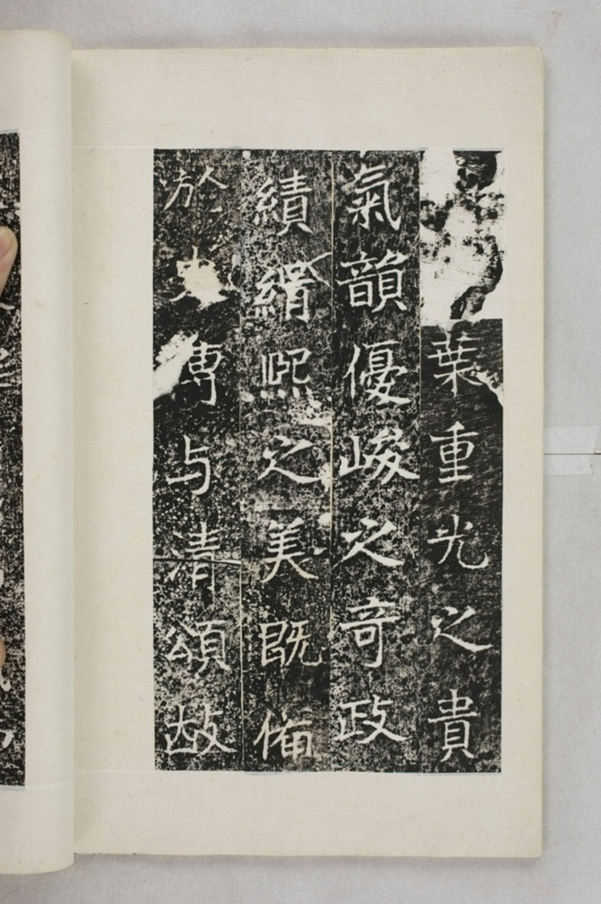 葉重光之貴
氣韻優峻之奇政
績緝熙之美既備
於傳与清頌故